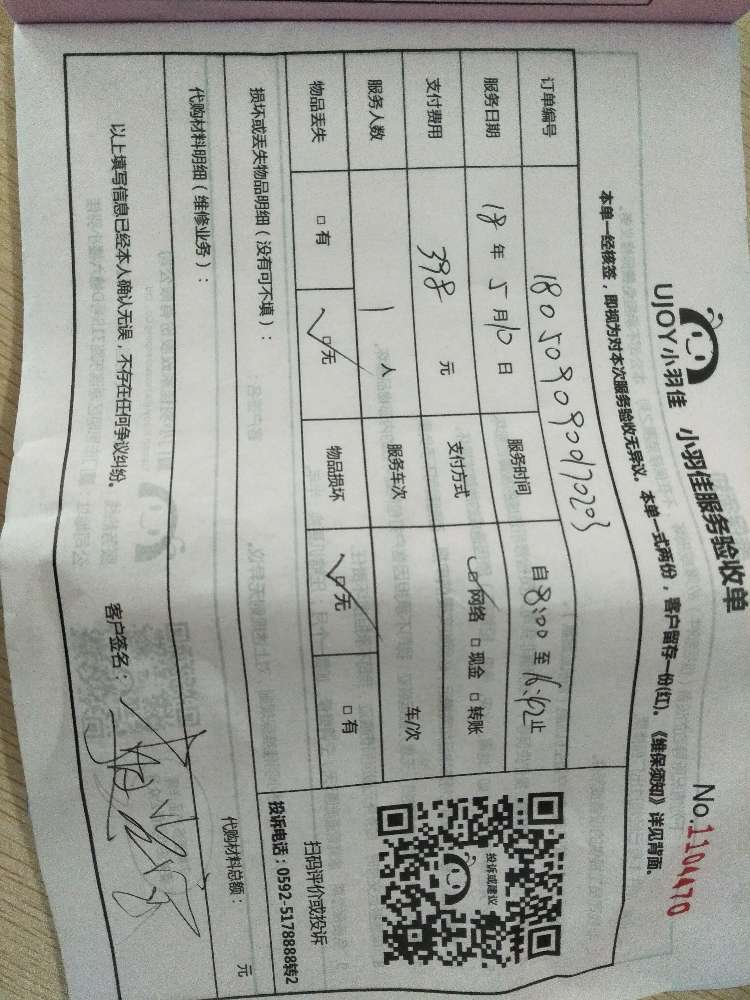 UJOY小羽佳 小羽佳服务验收单 No.1104470
本单一经核签，即视为对本次服务验收无异议。本单一式两份，客户留存一份(红)。《维保须知》详见背面。
订单编号 180509090470203
服务日期 18年5月10日 服务时间 自8:00至16:42止
支付费用 398 元 支付方式 ☑网络 □现金 □转账
服务人数 1 人 服务车次 车/次
物品丢失 □有 ☑无 物品损坏 ☑无 □有
投诉或建议
扫码评价或投诉
投诉电话：0592-5178888转2
损坏或丢失物品明细（没有可不填）：
代购材料明细（维修业务）： 代购材料总额： 元
以上填写信息已经本人确认无误，不存在任何争议纠纷。 客户签名：